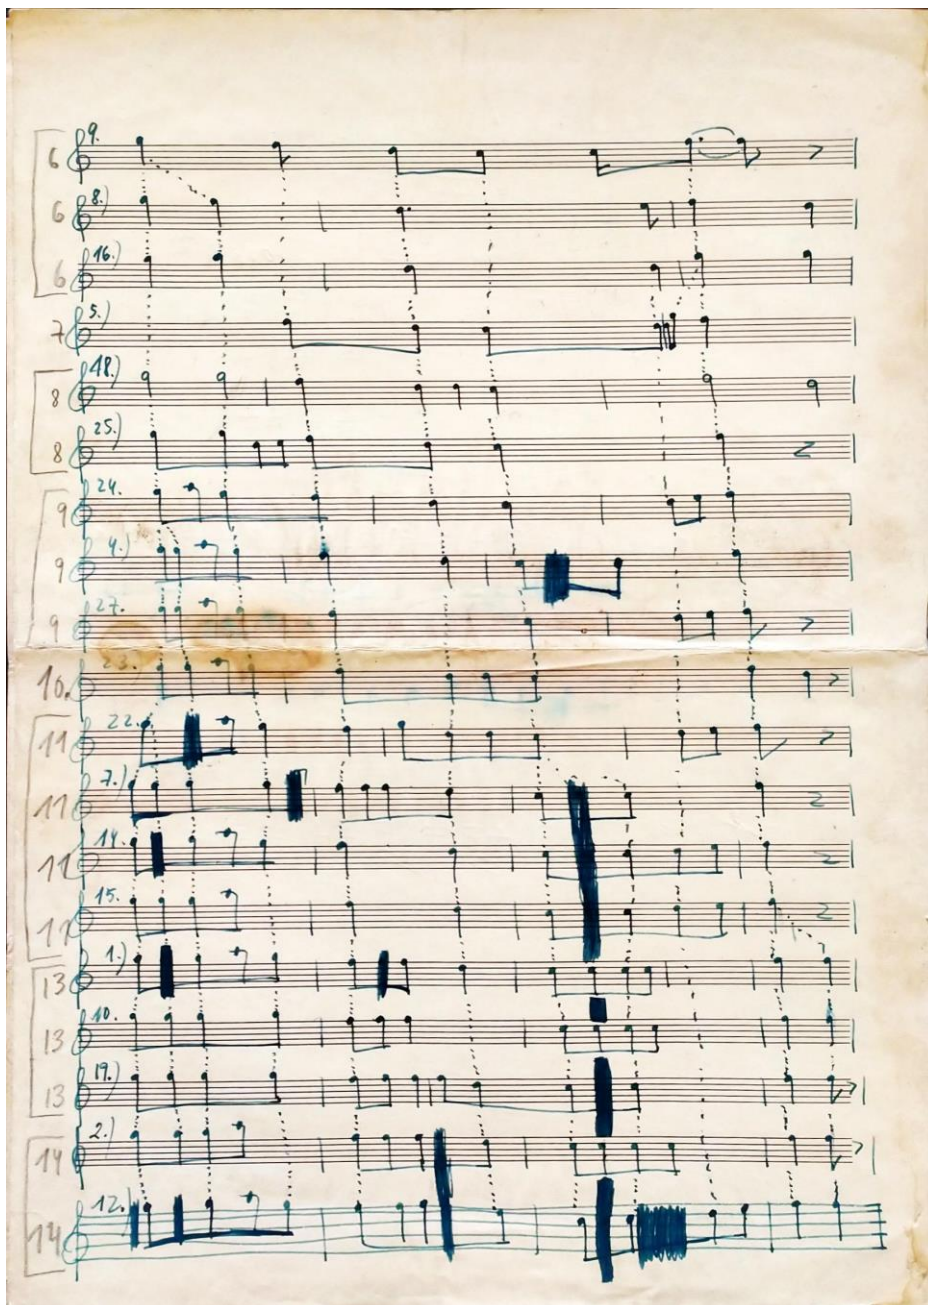 6 9.
6 8.)
6 16.)
7 5.)
8 18.)
8 25.)
9 24.
9 4.)
9 27.
10. 23.)
11 22.
11 7.)
11 14.
11 15.
13 1.)
13 10.
13 19.)
14 2.)
14 12.